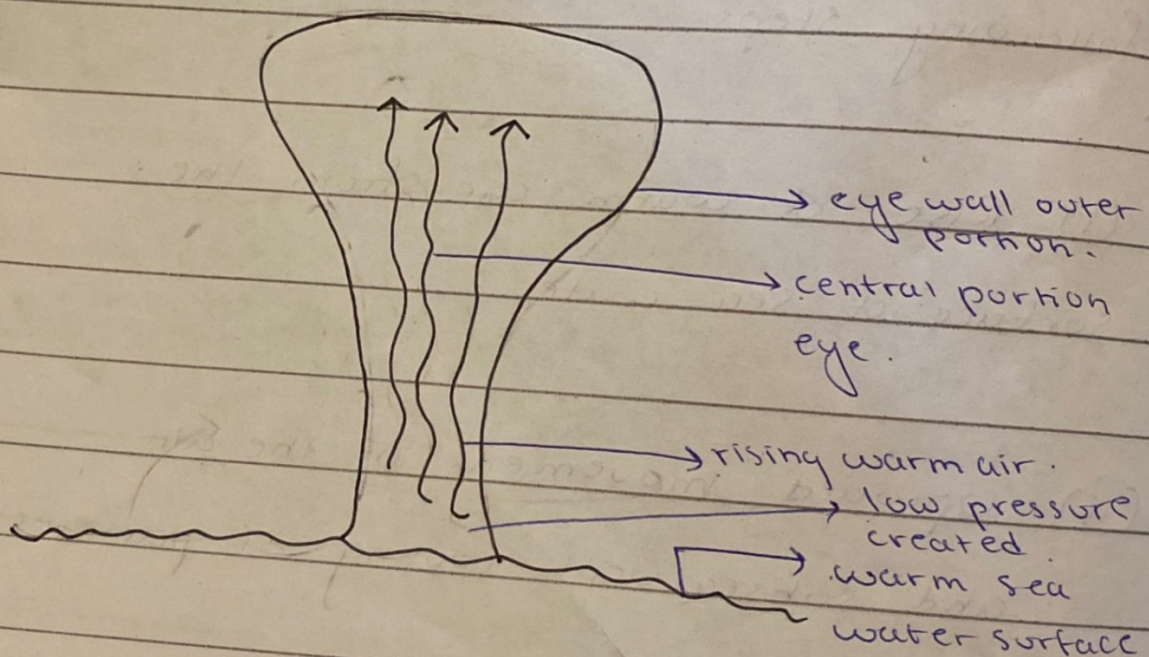 eye wall outer
portion.
central portion
eye.
rising warm air.
low pressure
created.
warm sea
water surface